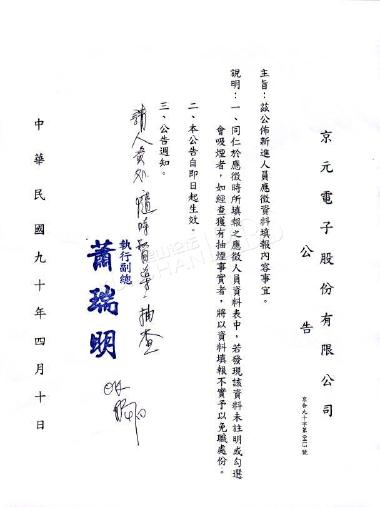 京元電子股份有限公司
公告
主旨：茲公佈新進人員應徵資料填報內容事宜。
說明：一、同仁於應徵時所填報之應徵人員資料表中，若發現該資料未註明或勾選
會吸煙者，如經查獲有抽煙事實者，將以資料填報不實予以免職處份。
二、本公告自即日起生效。
三、公告週知。
請人資處隨時督導、抽查
執行副總
蕭瑞明
中華民國九十年四月十日